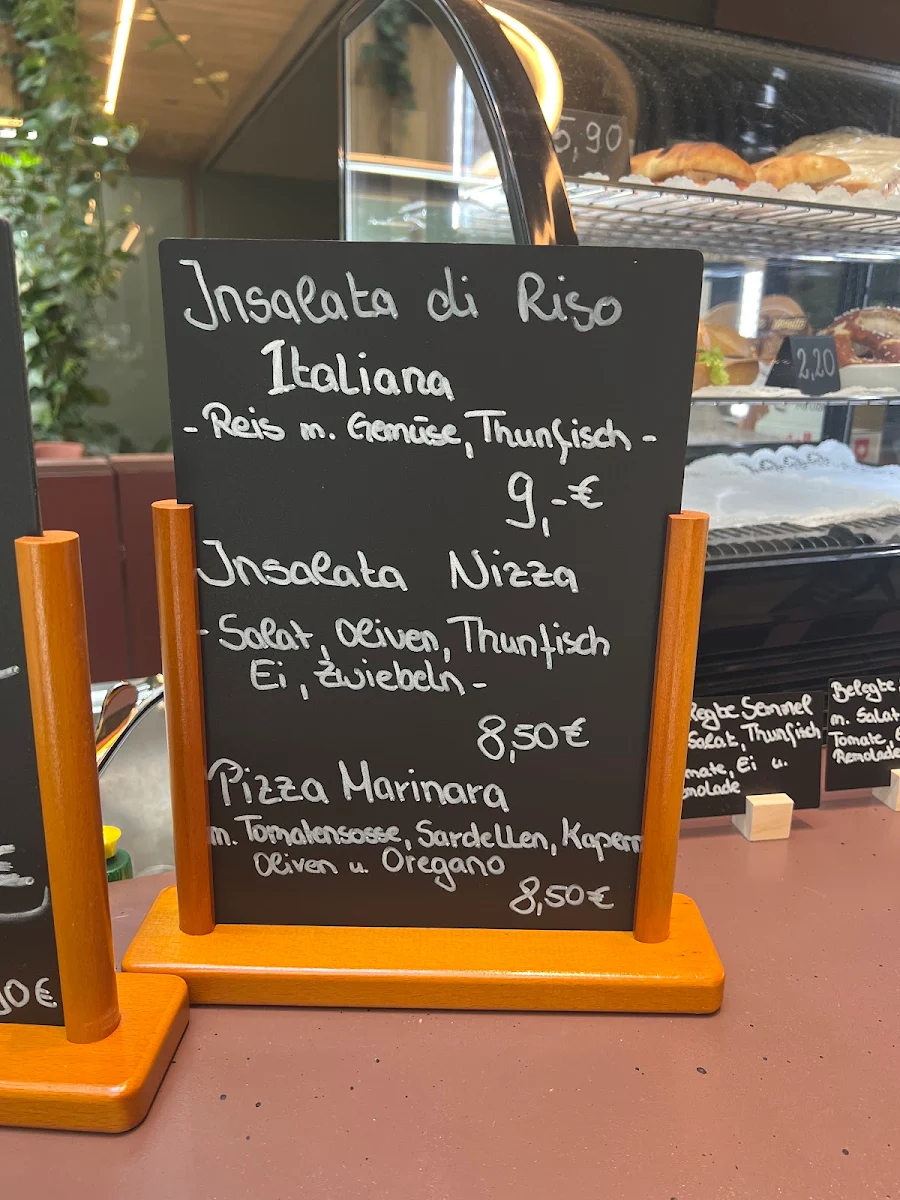 Insalata di Riso
Italiana
- Reis m. Gemüse, Thunfisch -
9,-€
Insalata Nizza
- Salat, Oliven, Thunfisch
Ei, Zwiebeln -
8,50€
Pizza Marinara
m. Tomatensosse, Sardellen, Kapern
Oliven u. Oregano
8,50€
5,90
2,20
Semmel
Salat, Thunfisch
Ei u.
Belegte
m. Salat
Tomate,
Remolade
0€